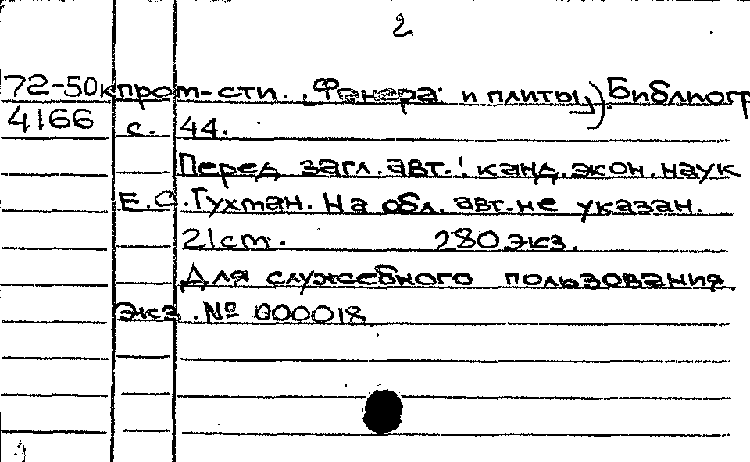 2
72-50к пром-сти. „Фанера и плиты“) Библиогр
4166 с. 44.
Перед загл. авт.: канд. экон. наук
Е.С. Гухман. На обл. авт. не указан.
21 cm. 280 экз.
Для служебного пользования.
Экз. № 000018